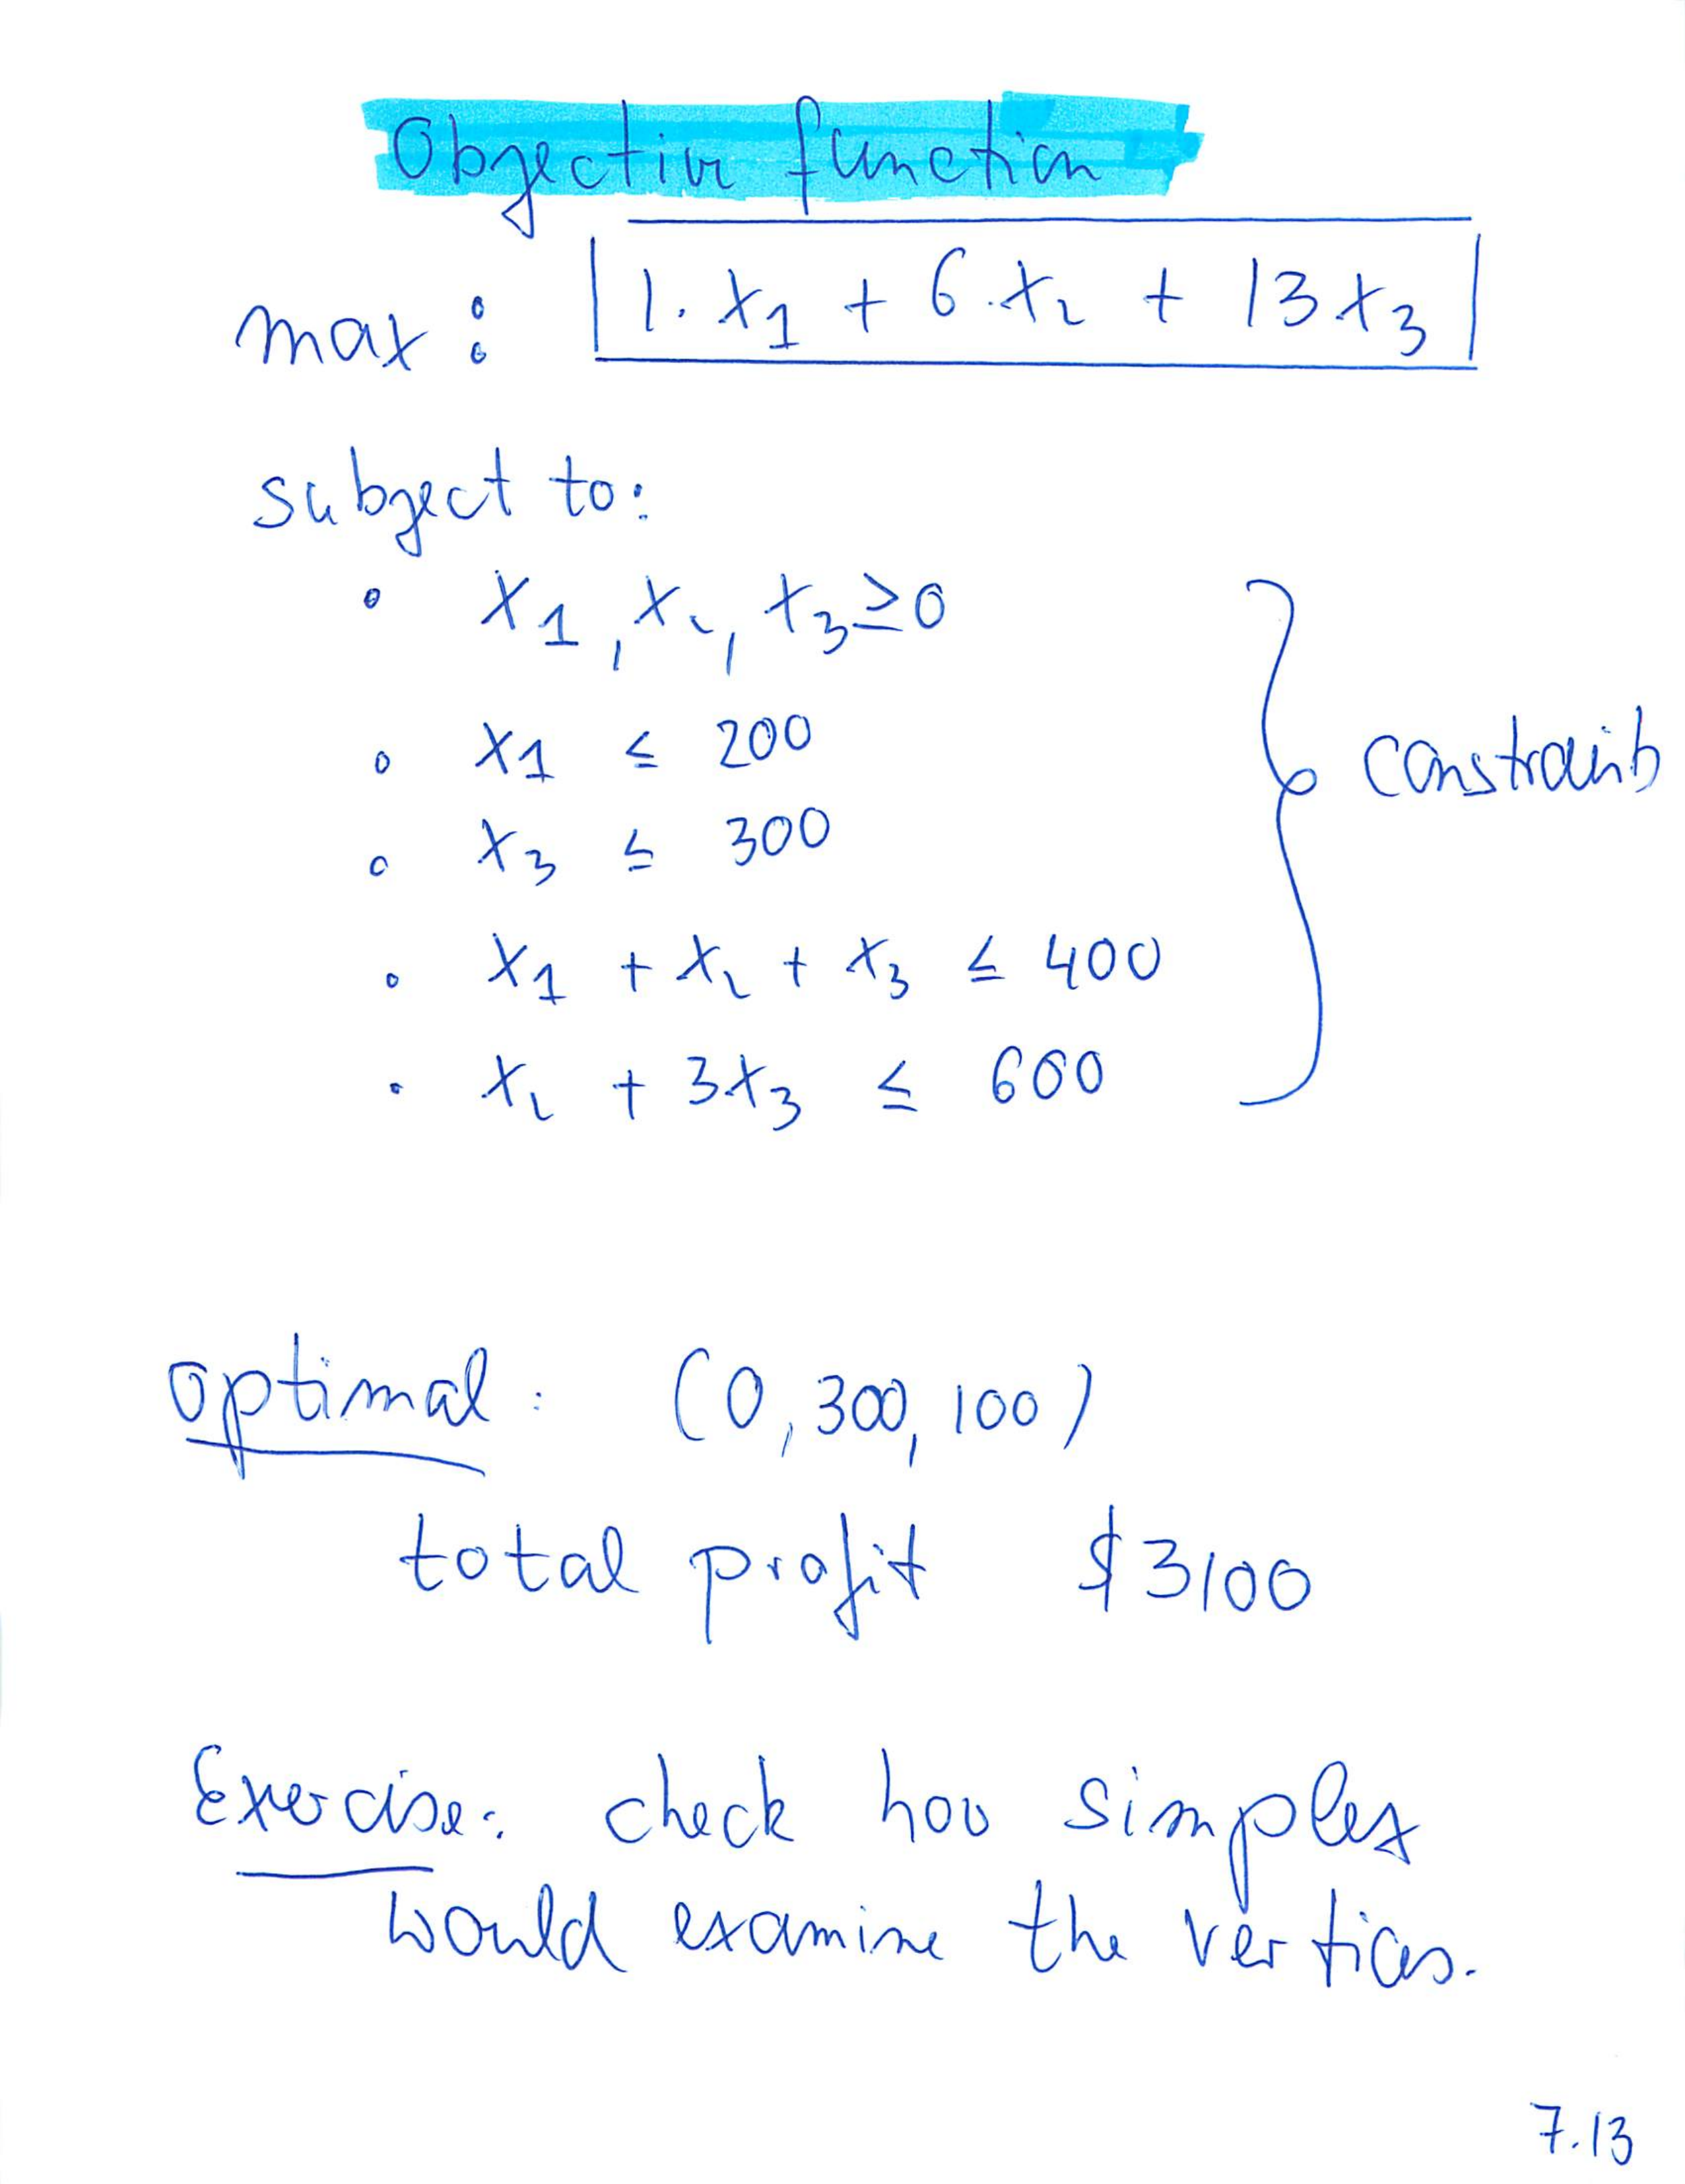 Objective function
max: 1. x1 + 6.x2 + 13x3
subject to:
° x1, x2, x3 ≥ 0
° x1 ≤ 200
° x3 ≤ 300
° x1 + x2 + x3 ≤ 400
• x2 + 3x3 ≤ 600
constraints
optimal: (0, 300, 100)
total profit $3100
Exercise: check how simplex
would examine the vertices.
7.13